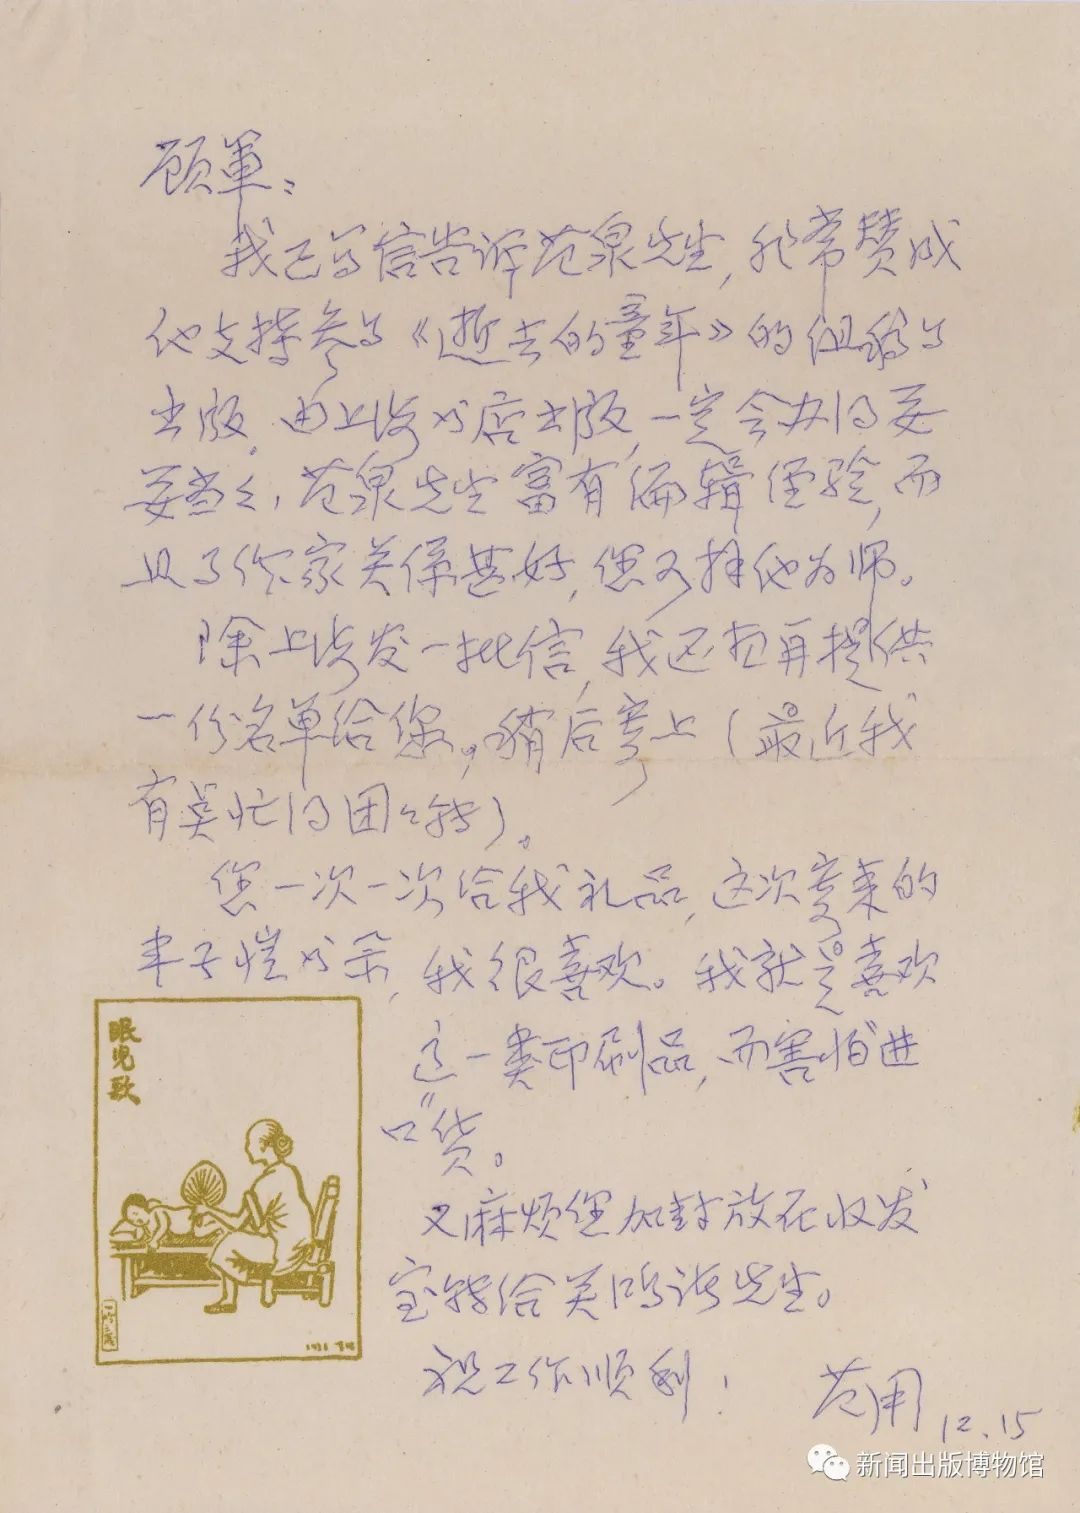 顾军：
我已写信告诉范泉先生，非常赞成
他支持参与《逝去的童年》的组稿与
出版。由上海书店出版，一定会办得妥
妥当々，范泉先生富有编辑经验，而
且与你家关系甚好，您可拜他为师。
除上海发一批信，我还想再提供
一份名单给您，稍后寄上（最近我
有点忙得团々转）。
您一次一次给我礼品，这次寄来的
丰子恺书呆，我很喜欢。我就是喜欢
这一类印刷品，而害怕“进
口”货。
又麻烦您加封放在收发
室转给吴鸣谦先生。
祝工作顺利！
范用 12.15
眠儿歌
新闻出版博物馆